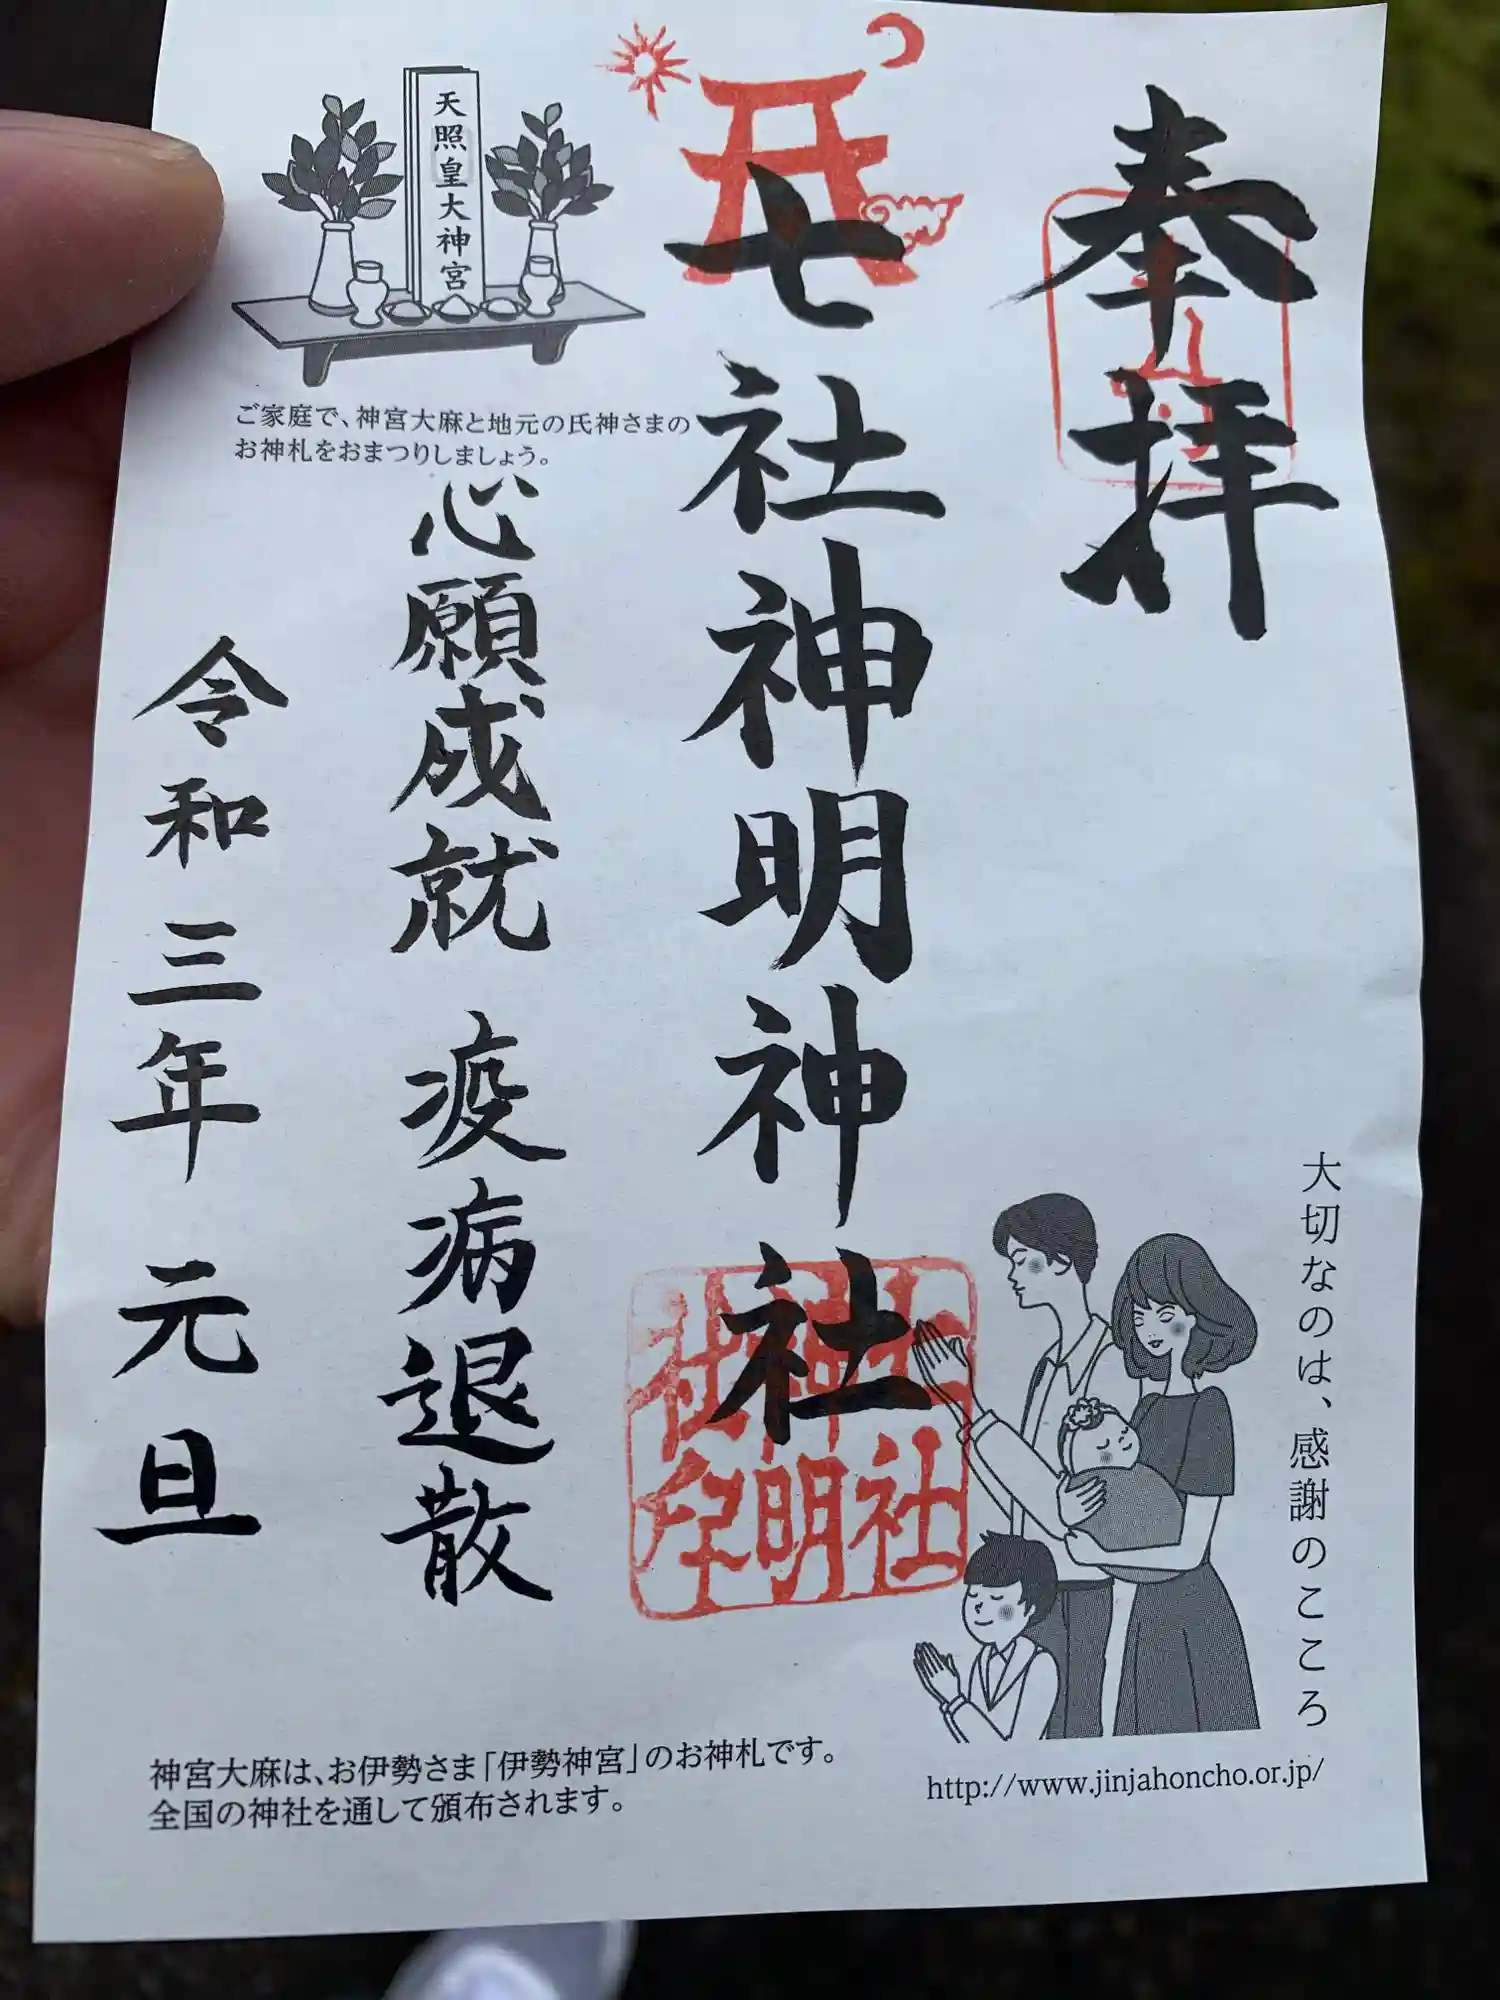 奉拝
七社神明神社
心願成就 疫病退散
令和三年 元旦
天照皇大神宮
ご家庭で、神宮大麻と地元の氏神さまの
お神札をおまつりしましょう。
大切なのは、感謝のこころ
神宮大麻は、お伊勢さま「伊勢神宮」のお神札です。
全国の神社を通して頒布されます。
http://www.jinjahoncho.or.jp/